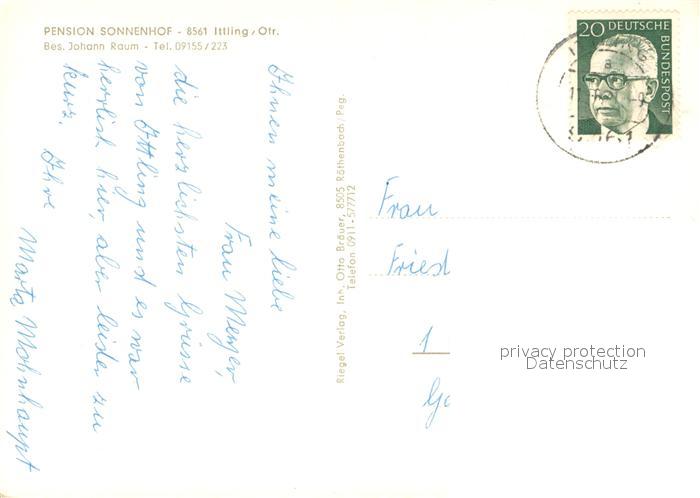 PENSION SONNENHOF - 8561 Ittling, Ofr.
Bes. Johann Raum - Tel. 09155/223
Ihnen meine liebe
Frau Menger,
die herzlichsten Grüsse
von Ittling und es war
herrlich hier, aber leider zu
kurz. Ihre
Marta Mohnhaupt
Riegel Verlag, Inh. Otto Bräuer, 8505 Röthenbach/Peg.
Telefon 0911-577712
20 DEUTSCHE
BUNDESPOST
Frau
Fried
1
privacy protection
Datenschutz